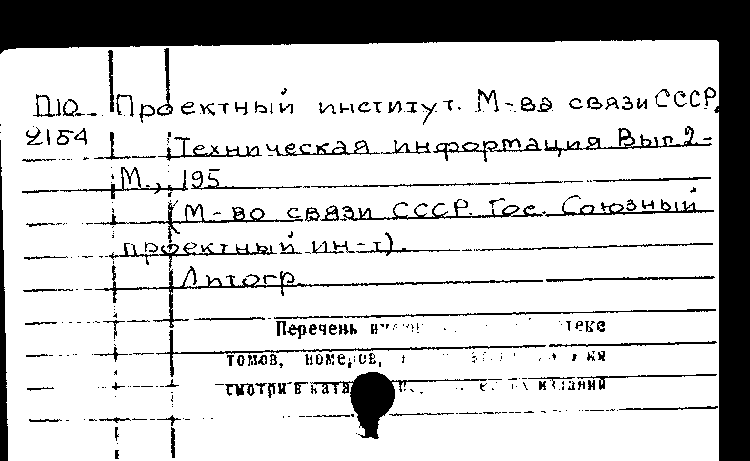 П10 Проектный институт. М-ва связи СССР.
2154 Техническая информация Вып. 2-
М., 195
(М-во связи СССР. Гос. Союзный
проектный ин-т).
Литогр.
Перечень теке
томов, номеров,
смотри в ката изданий